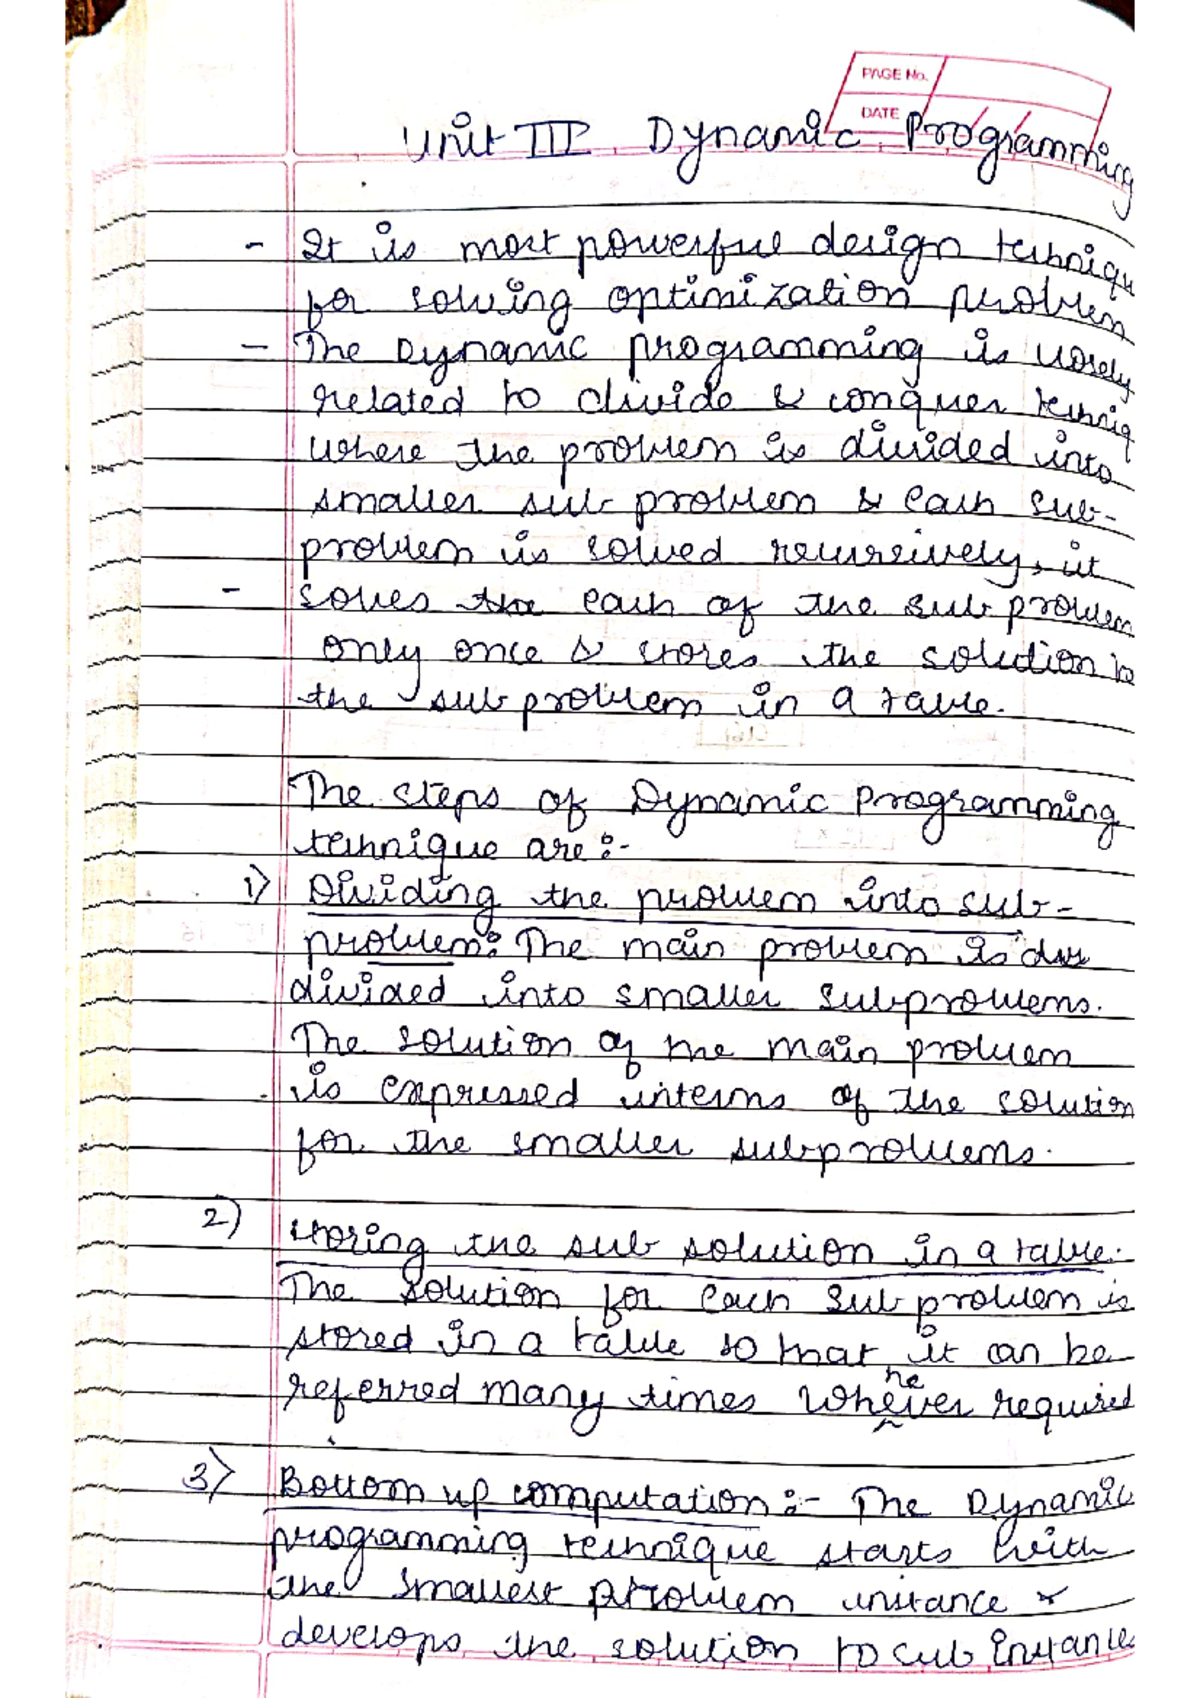 PAGE No.
DATE / /
Unit III Dynamic Programming
- It is most powerful design techniqu
for solving optimization problem
- The Dynamic programming is closely
related to divide & conquer techniq
where the problem is divided into
smaller sub problem & each sub-
problem is solved recursively, it
- solves the each of the sub problem
only once & stores the solution to
the sub problem in a table.
The steps of Dynamic Programming
technique are :-
1) Dividing the problem into sub-
problem: The main problem is
divided into smaller subproblems.
The solution of the main problem
is expressed interms of the solution
for the smaller subproblems.
2) storing the sub solution in a table.
The solution for each sub problem is
stored in a table so that it can be
referred many times whenever required
3) Bottom up computation :- The Dynamic
programming technique starts with
the smallest problem instance &
develops the solution to sub instance